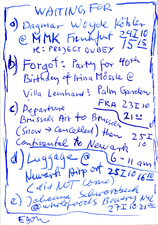 WAITING FOR
a) Dagmar Woyde Köhler
@ MMK Frankfurt 24 I 10
re: PROJECT QUBEY 15 15
b) Forgot: Party for 40th
Birthday of Irina Mössle @
Villa Leonhardi Palm Garden
c) Departure FRA 23 I 10
Brussels Air to Brussels 21
(Snow → Cancelled) then 25 I
Continental to Newark 10
d) Luggage @ 6-11 am
Newark Airport 25 I 10
(did NOT come)
e) Johanna
@ wholefoods Bowery NYC
27 I 10